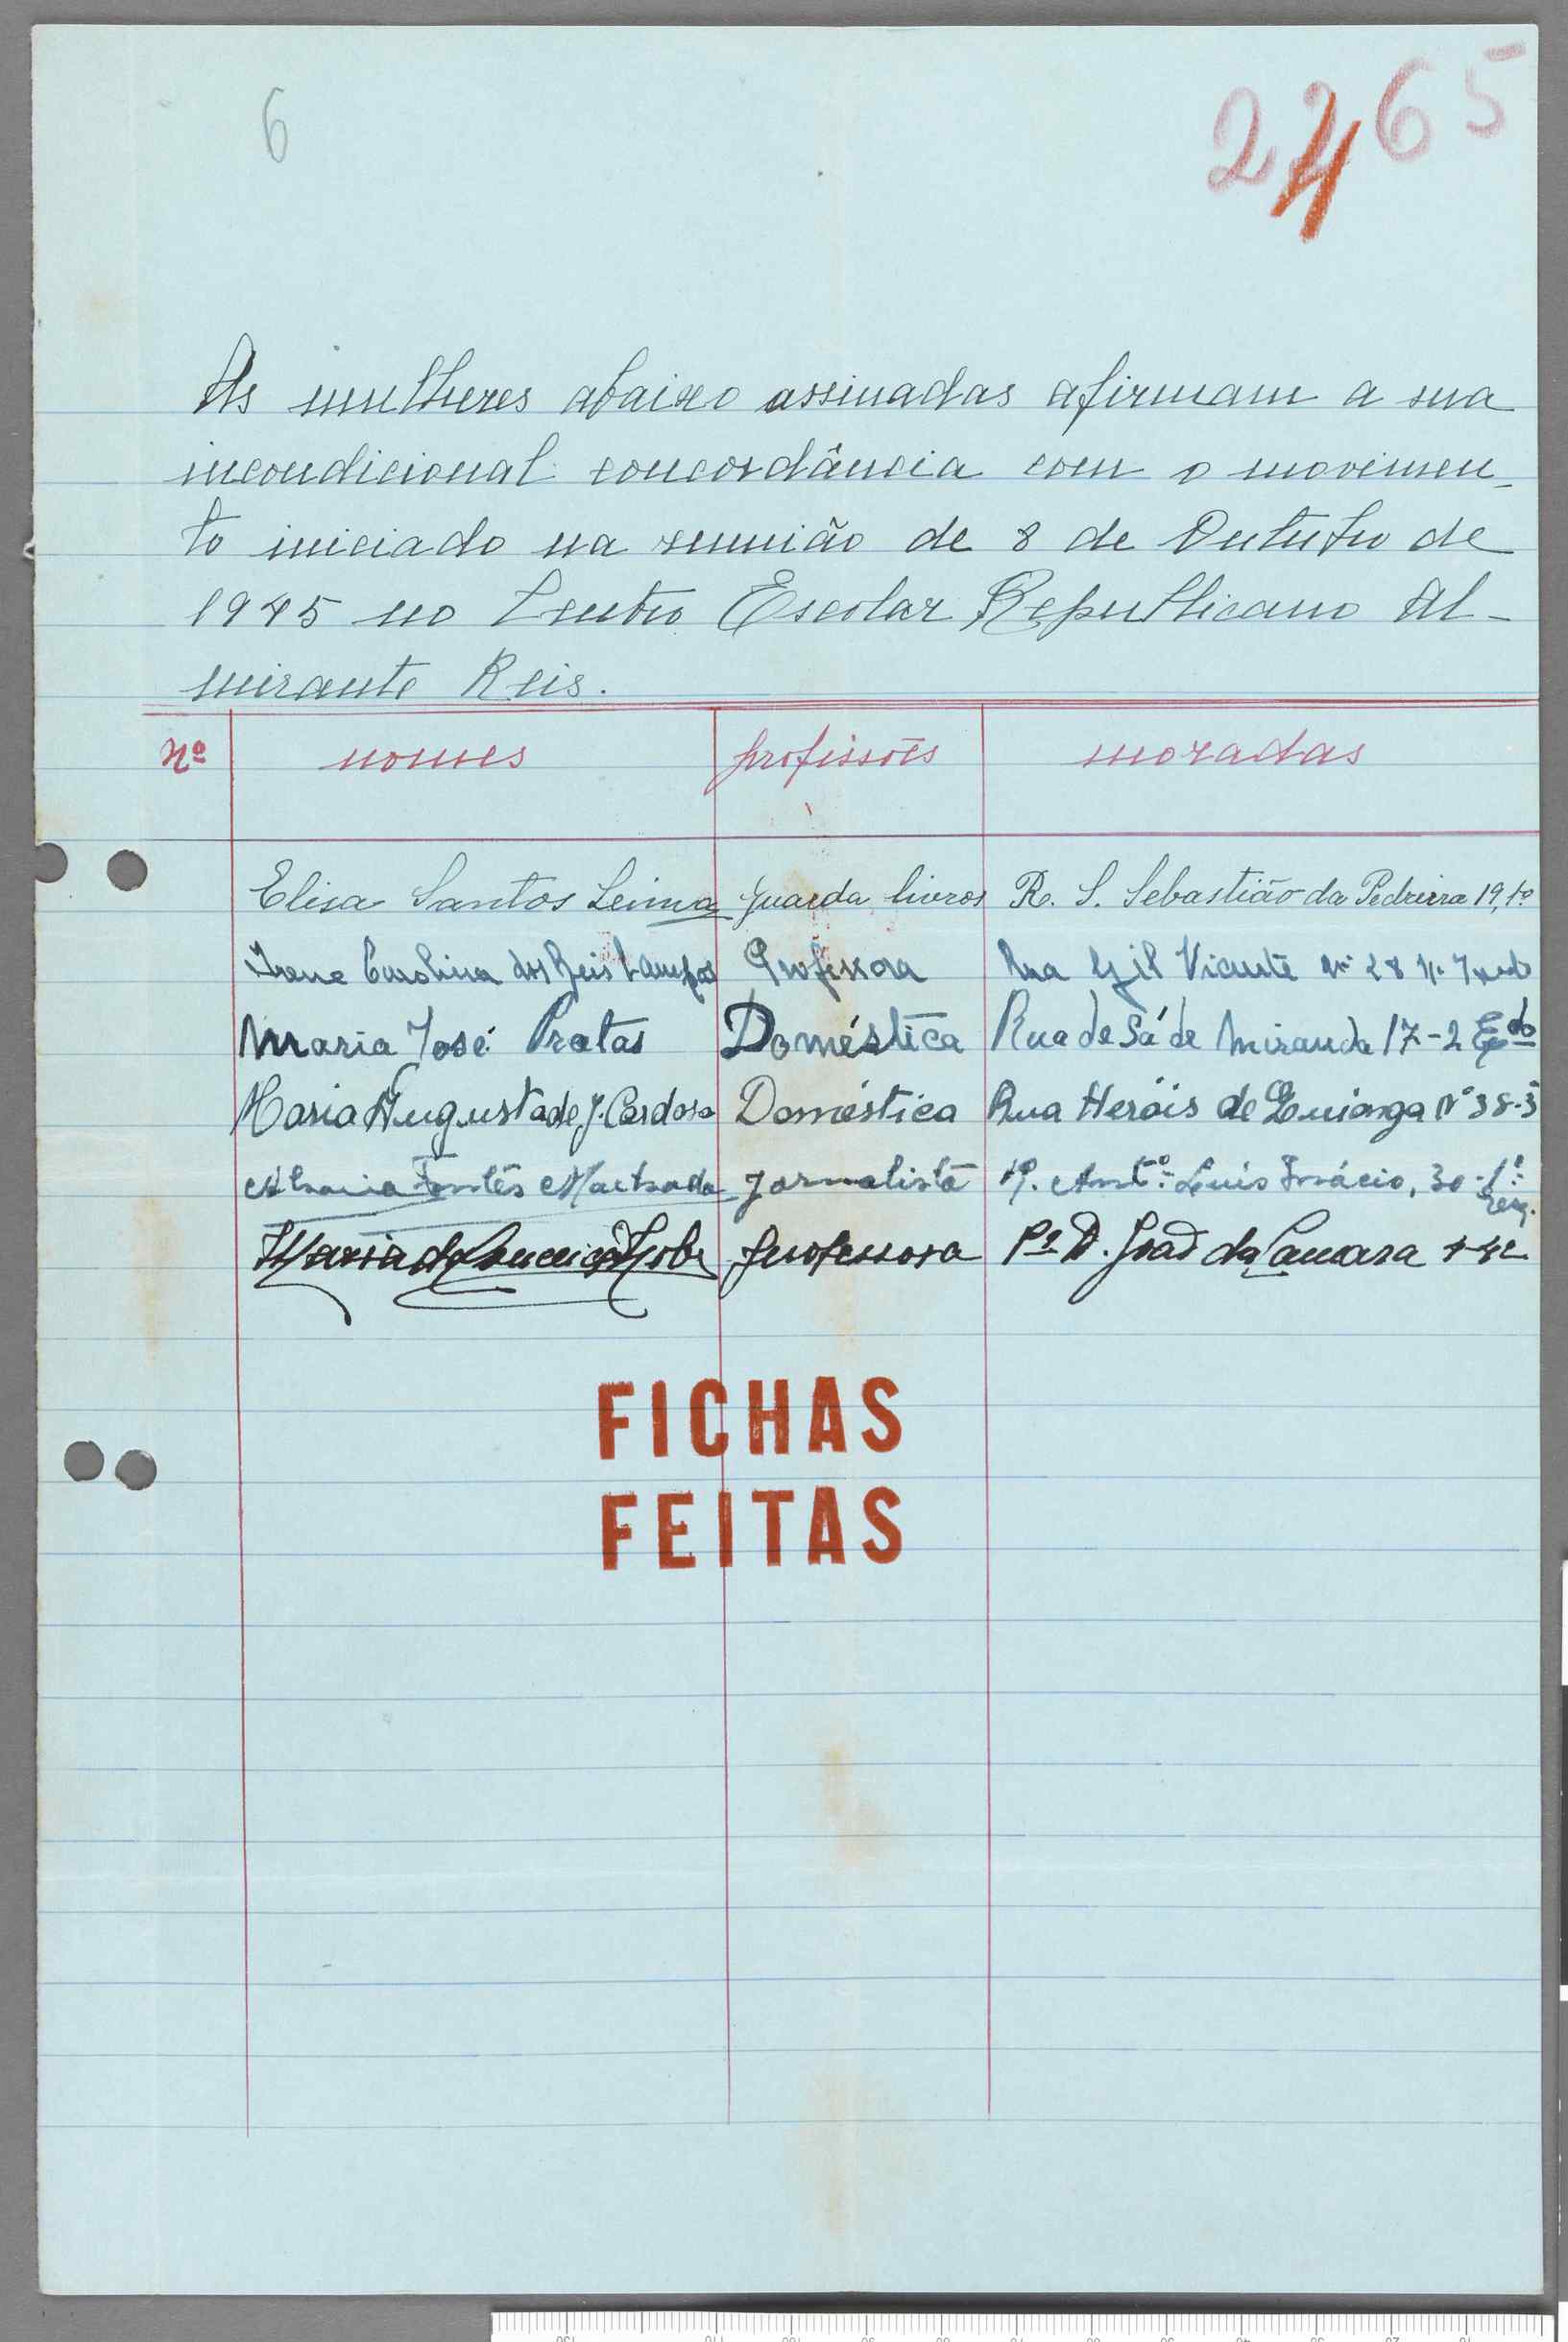 6
2465
As mulheres abaixo assinadas afirmam a sua
incondicional concordância com o movimen-
to iniciado na reunião de 8 de Outubro de
1945 no Centro Escolar Republicano Al-
mirante Reis.
Nº nomes profissões moradas
Elisa Santos guarda livros R. S. Sebastião da Pedreira 19, 1º
Irene Carolina dos Reis Campos Professora Rua Gil Vicente
Maria José Pratas Doméstica Rua de Sá de Miranda 17-2 Esqdo
Maria Augusta de J. Cardoso Doméstica Rua Herois de Quionga Nº 38-3
Fontes Machado Jornalista R. Antº Luís Inácio, 30-1º
Maria da Conceição professora Pª D. João da Camara
FICHAS
FEITAS